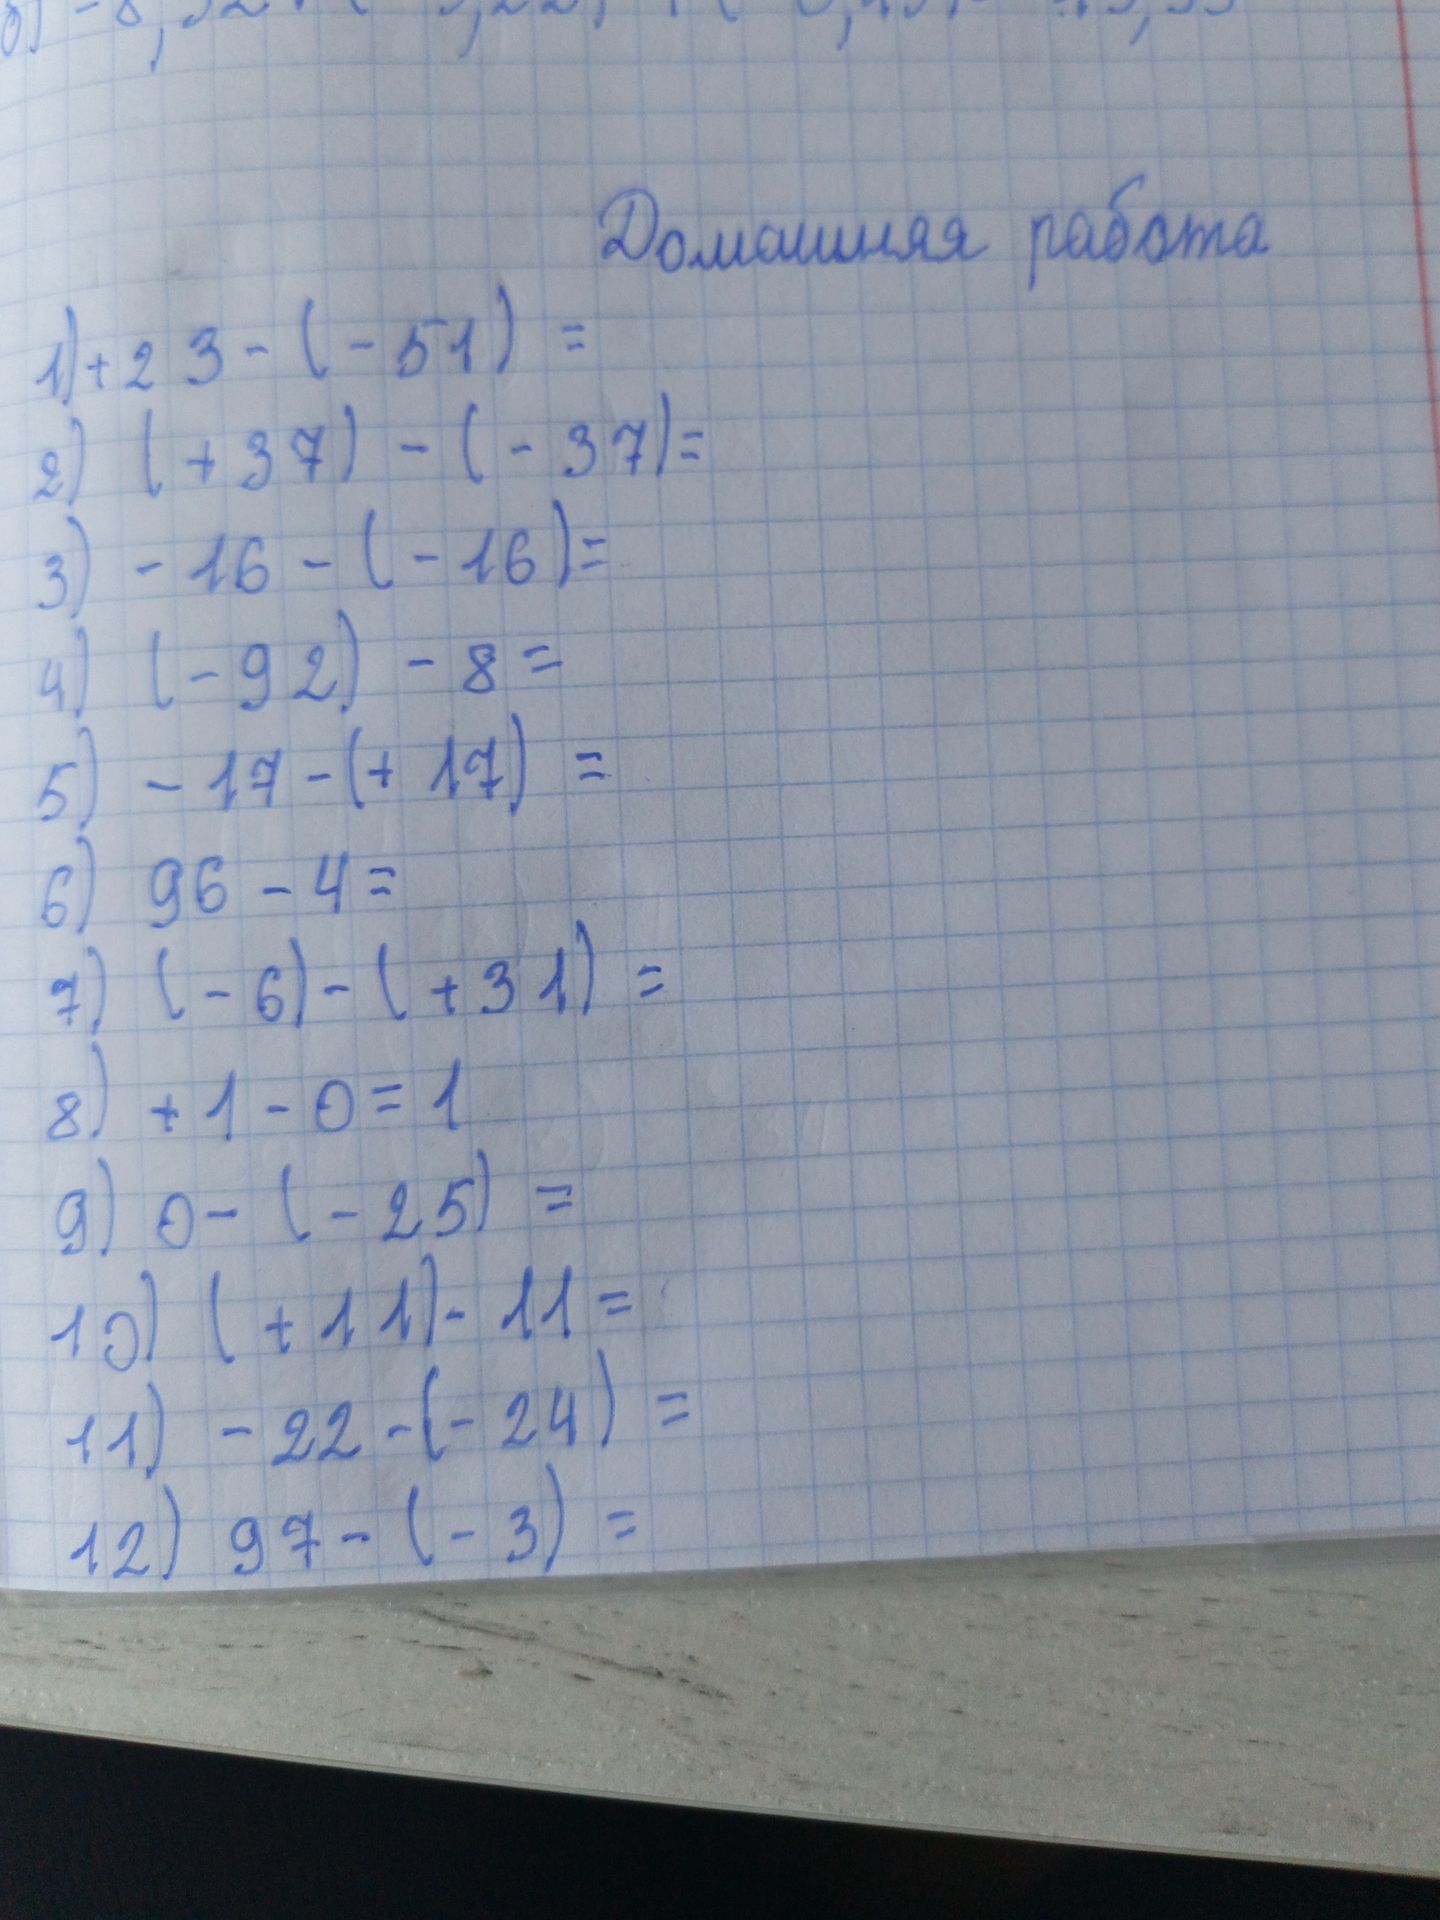 Домашняя работа
1) +23 - (-51) =
2) (+37) - (-37) =
3) -16 - (-16) =
4) (-92) - 8 =
5) -17 - (+17) =
6) 96 - 4 =
7) (-6) - (+31) =
8) +1 - 0 = 1
9) 0 - (-25) =
10) (+11) - 11 =
11) -22 - (-24) =
12) 97 - (-3) =